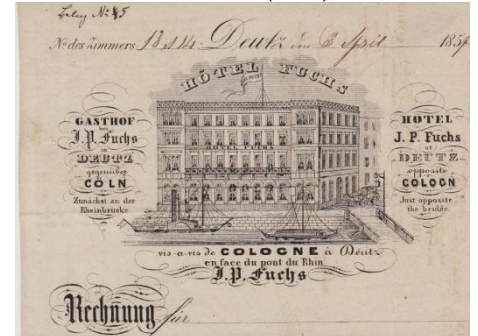 Beleg No 45
No des Zimmers 13 & 14. Deutz den 3 April 1857
HÔTEL FUCHS
GASTHOF
bei
J. P. Fuchs
in
DEUTZ
gegenüber
CÖLN
Zunächst an der
Rheinbrücke
HOTEL
J. P. Fuchs
at
DEUTZ
opposite
COLOGN
Just opposite
the bridde
vis-a-vis de COLOGNE à Deutz
en face du pont du Rhin
J. P. Fuchs
Rechnung für